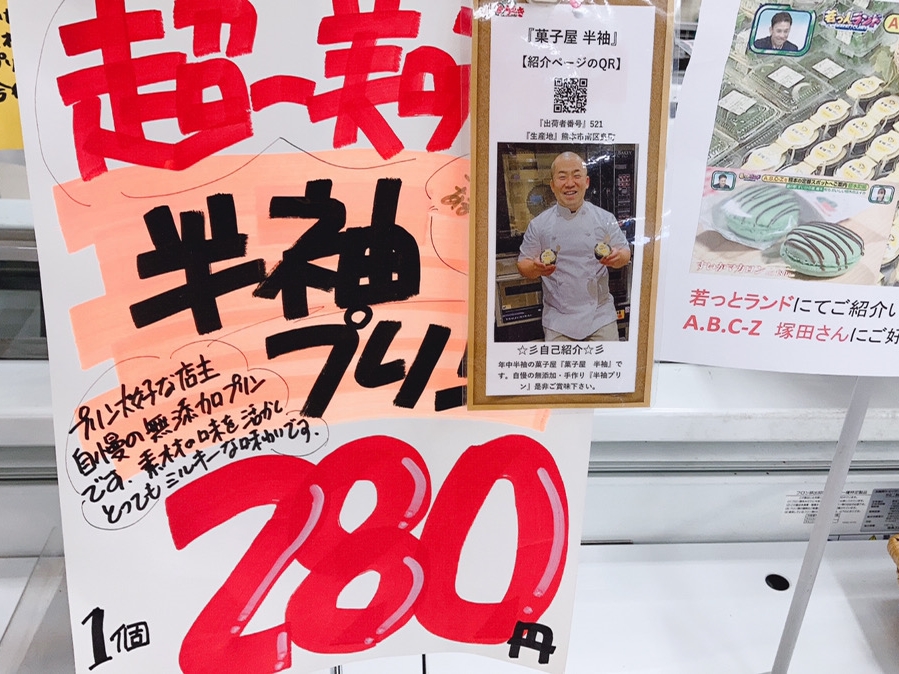 超〜美の
半袖
プリン
プリン大好な店主
自慢の無添加プリン
です。素材の味を活かし
とってもミルキーな味わいです。
280
1個
円
『菓子屋 半袖』
【紹介ページのQR】
『出荷者番号』521
『生産地』熊本市南区
☆彡自己紹介☆彡
年中半袖の菓子屋『菓子屋 半袖』で
す。自慢の無添加・手作り『半袖プリ
ン』是非ご賞味下さい。
若っ人ランド
若っとランドにてご紹介い
A.B.C-Z 塚田さんにご好